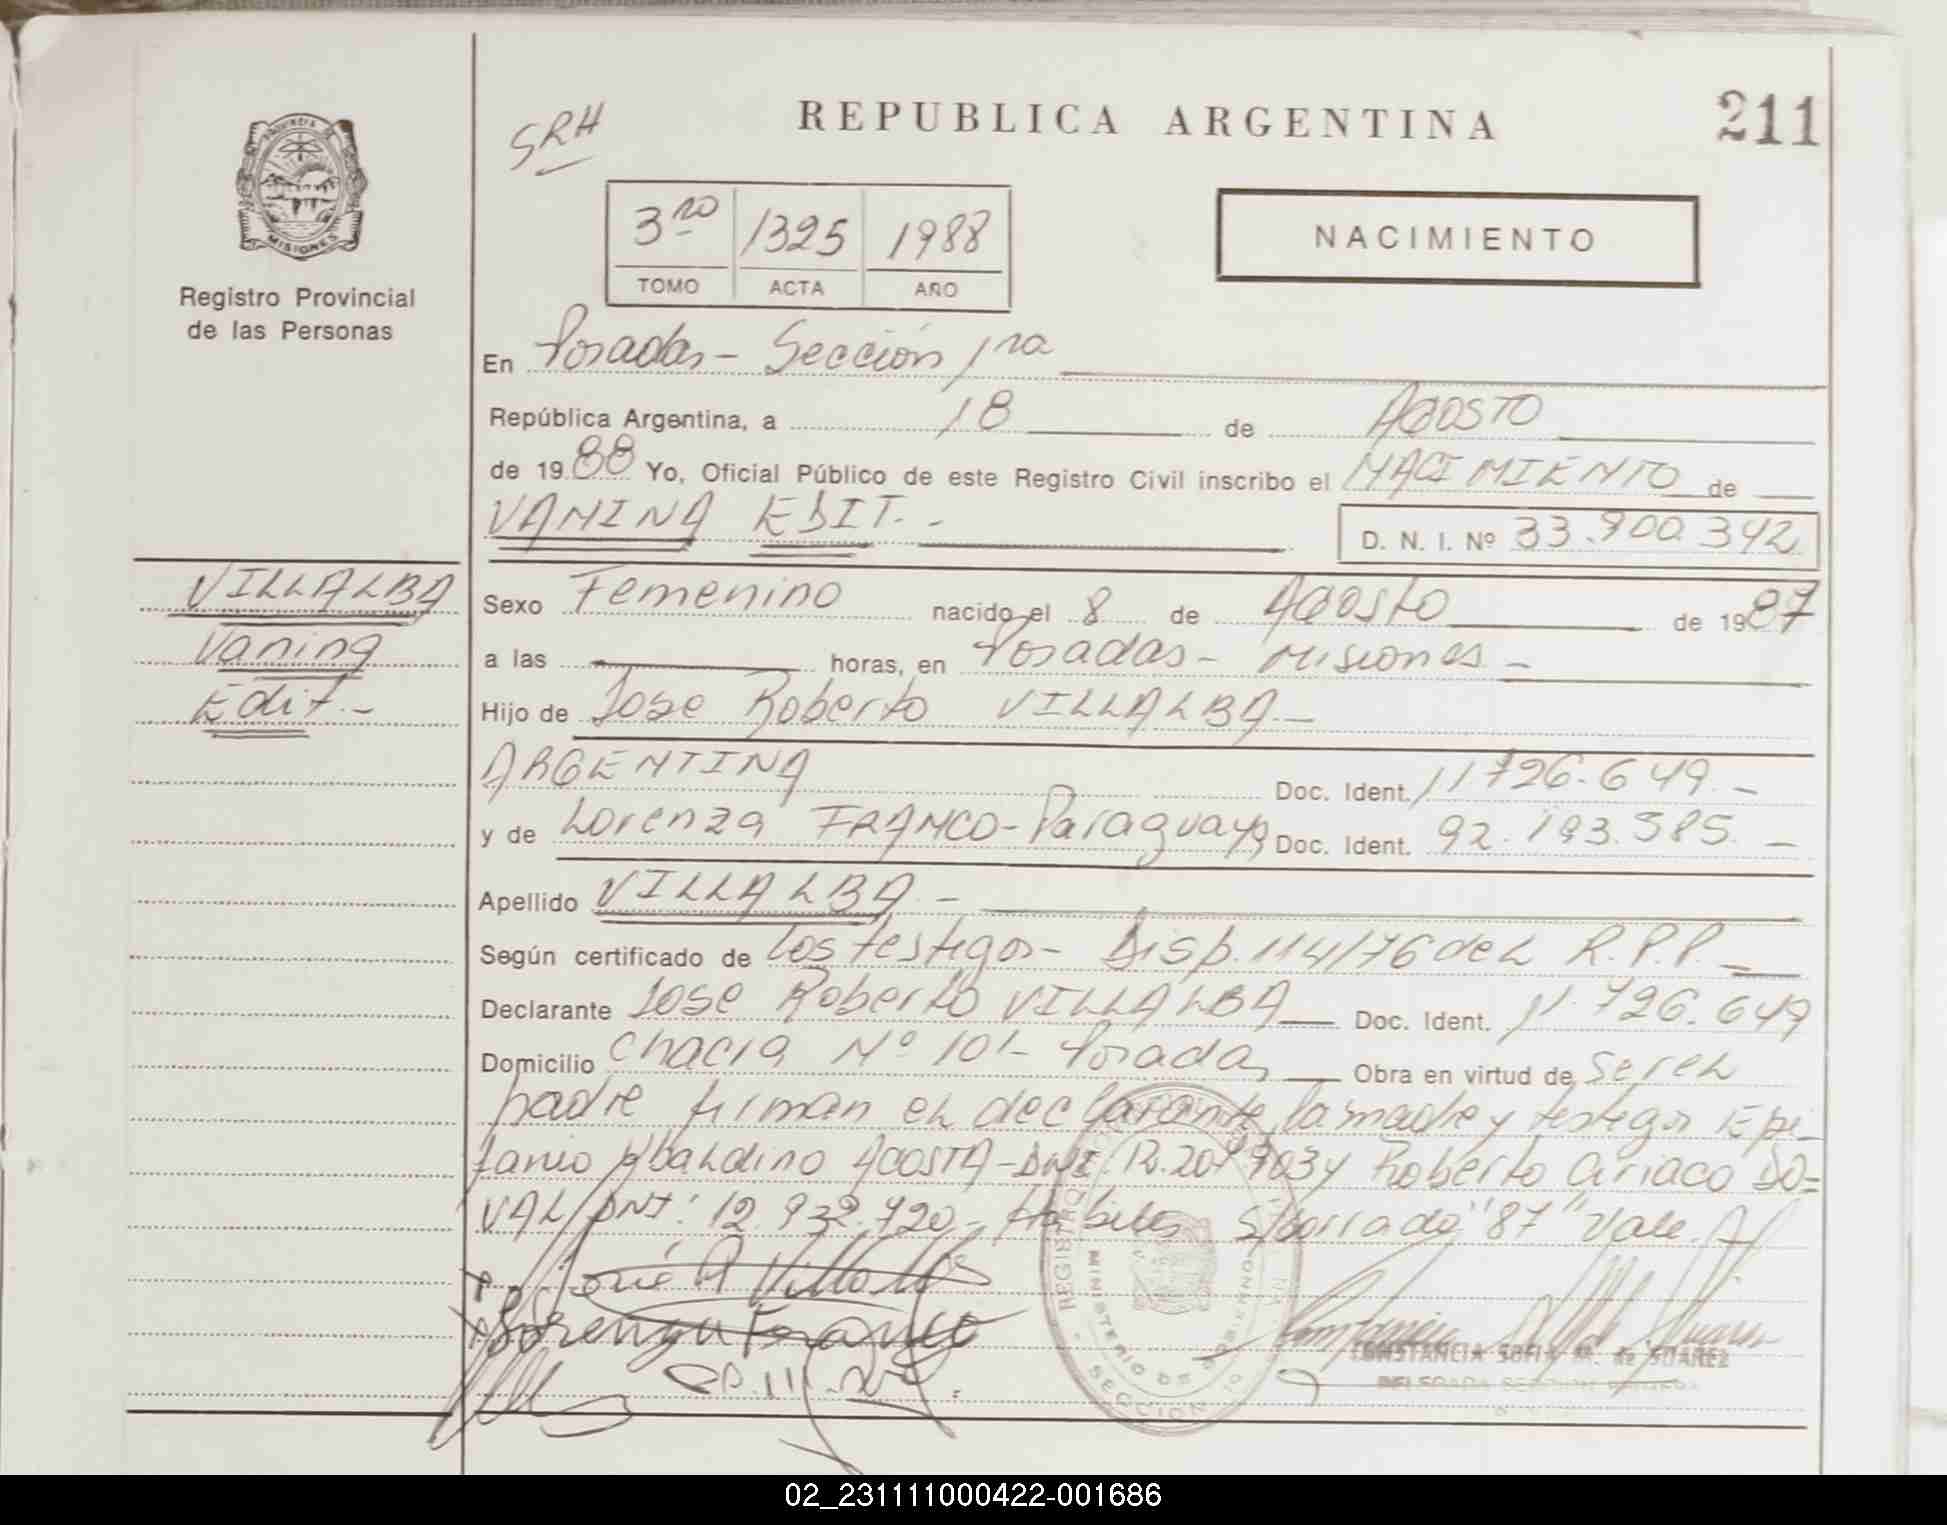 REPUBLICA ARGENTINA
211
SRH
PROVINCIA
MISIONES
Registro Provincial
de las Personas
3ro 1325 1988
TOMO ACTA AÑO
NACIMIENTO
En Posadas - Sección 1ra
República Argentina, a 18 de AGOSTO
de 1988 Yo, Oficial Público de este Registro Civil inscribo el NACIMIENTO de
VANINA EDIT.-
D. N. I. Nº 33.900.342
VILLALBA
Vanina
Edit.-
Sexo Femenino nacido el 8 de Agosto de 1987
a las horas, en Posadas - Misiones -
Hijo de Jose Roberto VILLALBA.-
ARGENTINA Doc. Ident. 11726.649.-
y de Lorenza FRANCO - Paraguaya Doc. Ident. 92.193.585.-
Apellido VILLALBA.-
Según certificado de los testigos - Disp. 114/76 del R.P.P.-
Declarante Jose Roberto VILLALBA Doc. Ident. 11.726.649
Domicilio Chacra Nº 101- Posadas Obra en virtud de ser el
padre firman el declarante, la madre y testigos Epi-
fanio Ubaldino ACOSTA - DNI. y Roberto Ciriaco DO=
VAL/DNI: 12.932.720.- Habiles S/borrado "87" Vale.
José R Villalba
Lorenza Franco
CONSTANCIA SOFIA M. de SUAREZ
DELEGADA SECCION PRIMERA
REGISTRO
MINISTERIO DE GOBIERNO
SECCION
02_231111000422-001686